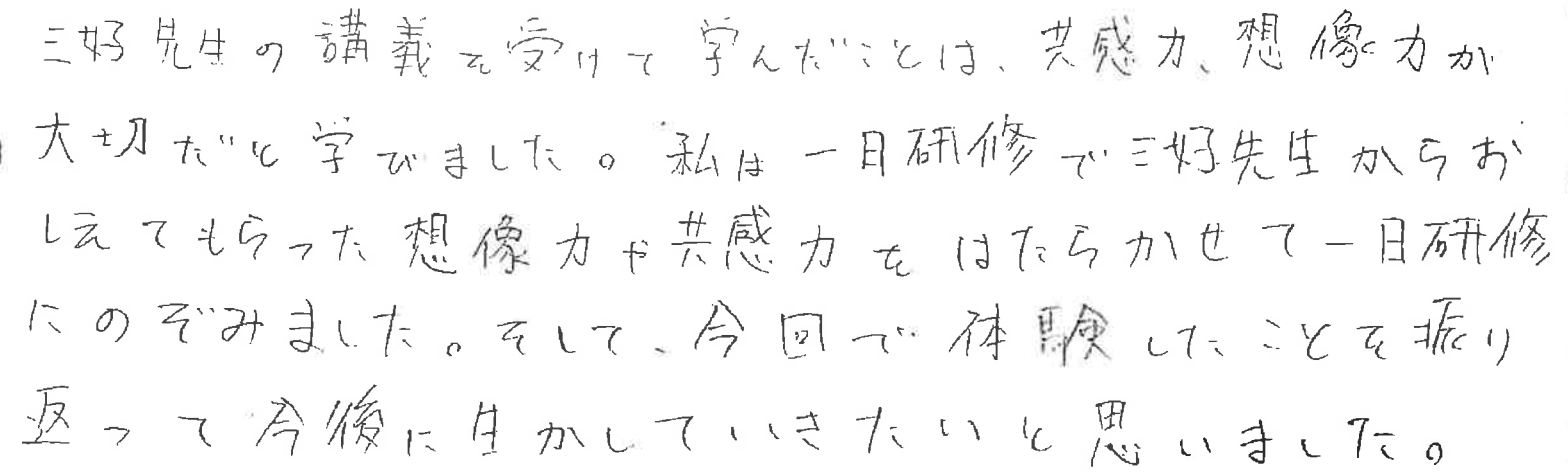 三好先生の講義を受けて学んだことは、共感力、想像力が
大切だと学びました。私は一日研修で三好先生からお
しえてもらった想像力や共感力をはたらかせて一日研修
にのぞみました。そして、今回で体験したことを振り
返って今後に生かしていきたいと思いました。